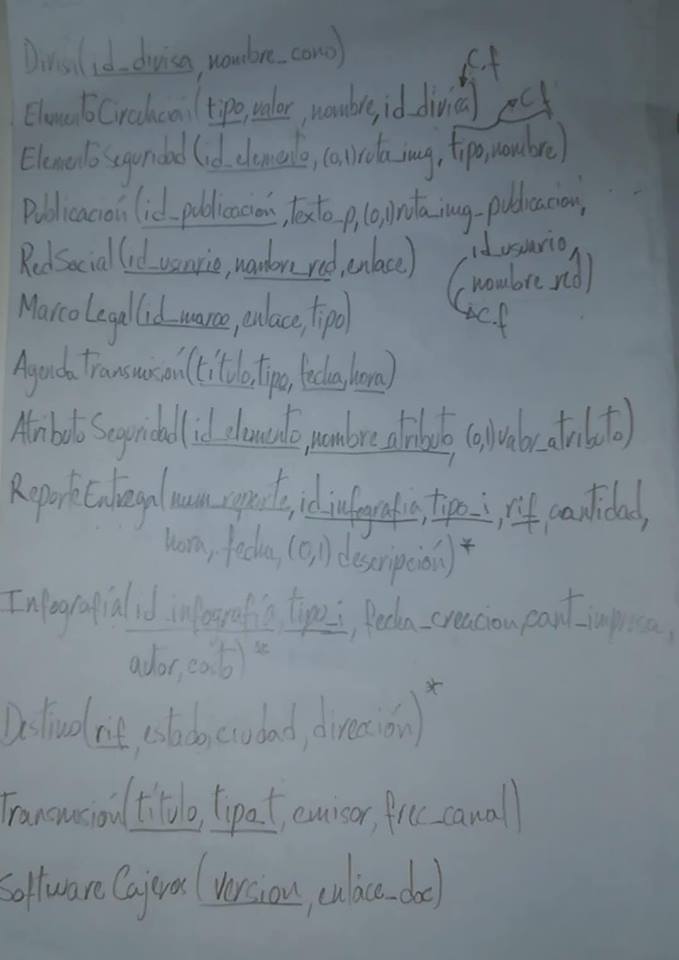 Divisa(id_divisa, nombre_cono)
c.f
ElementoCirculación(tipo, valor, nombre, id_divisa)
c.f
ElementoSeguridad(id_elemento, (0,1)ruta_img, tipo, nombre)
Publicación(id_publicación, texto_p, (0,1)ruta_img_publicacion,
id_usuario,
nombre_red)
c.f
RedSocial(id_usuario, nombre_red, enlace)
MarcoLegal(id_marco, enlace, tipo)
AgendaTransmisión(título, tipo, fecha, hora)
AtributoSeguridad(id_elemento, nombre_atributo, (0,1)valor_atributo)
ReporteEntrega(num_reporte, id_infografia, tipo_i, rif, cantidad,
hora, fecha, (0,1) descripción)*
Infografía(id_infografía, tipo_i, fecha_creacion, cant_impresa,
autor, costo)*
Destino(rif, estado, ciudad, direción)*
Transmisión(título, tipo_t, emisor, frec_canal)
Software Cajeros(version, enlace_doc)